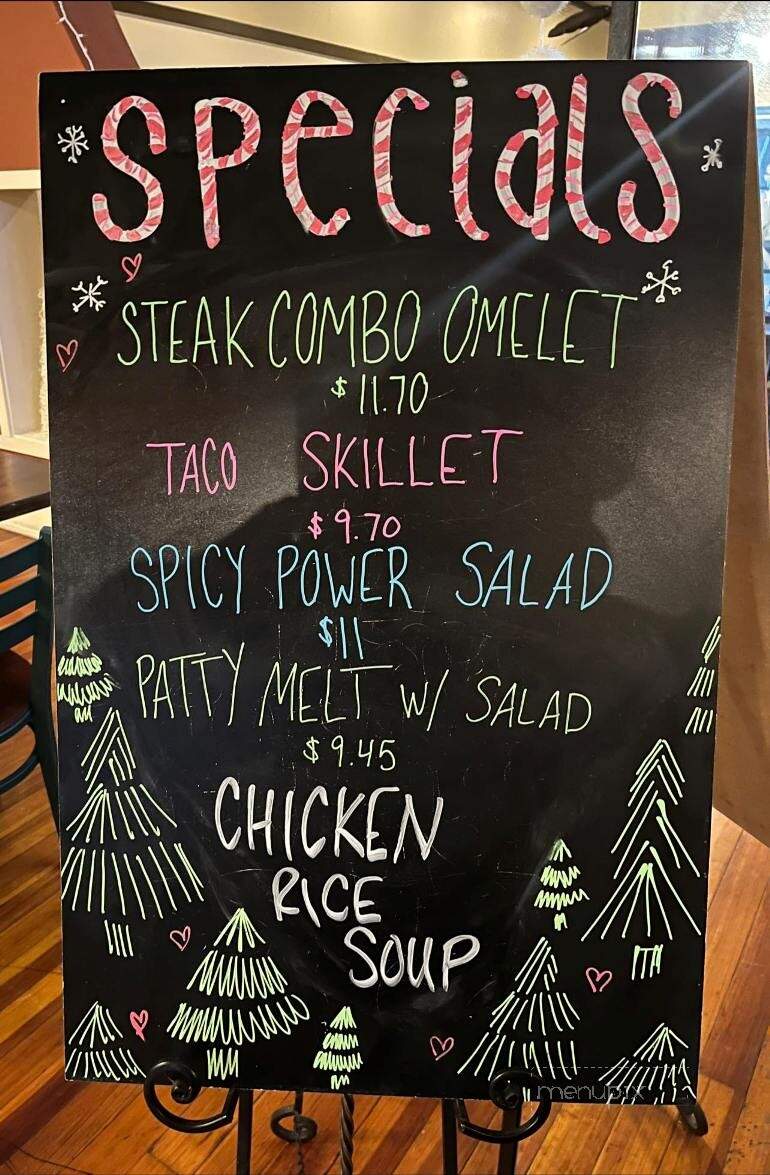 SPeCiaLS
STEAK COMBO OMELET
$11.70
TACO SKILLET
$9.70
SPICY POWER SALAD
$11
PATTY MELT W/ SALAD
$9.45
CHICKEN
RICE
SOUP
menupix